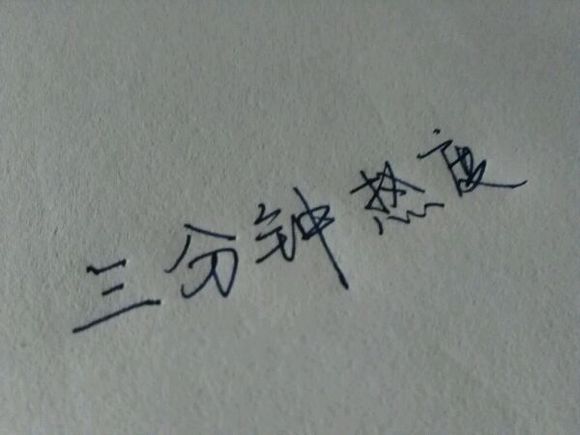 三分钟热度